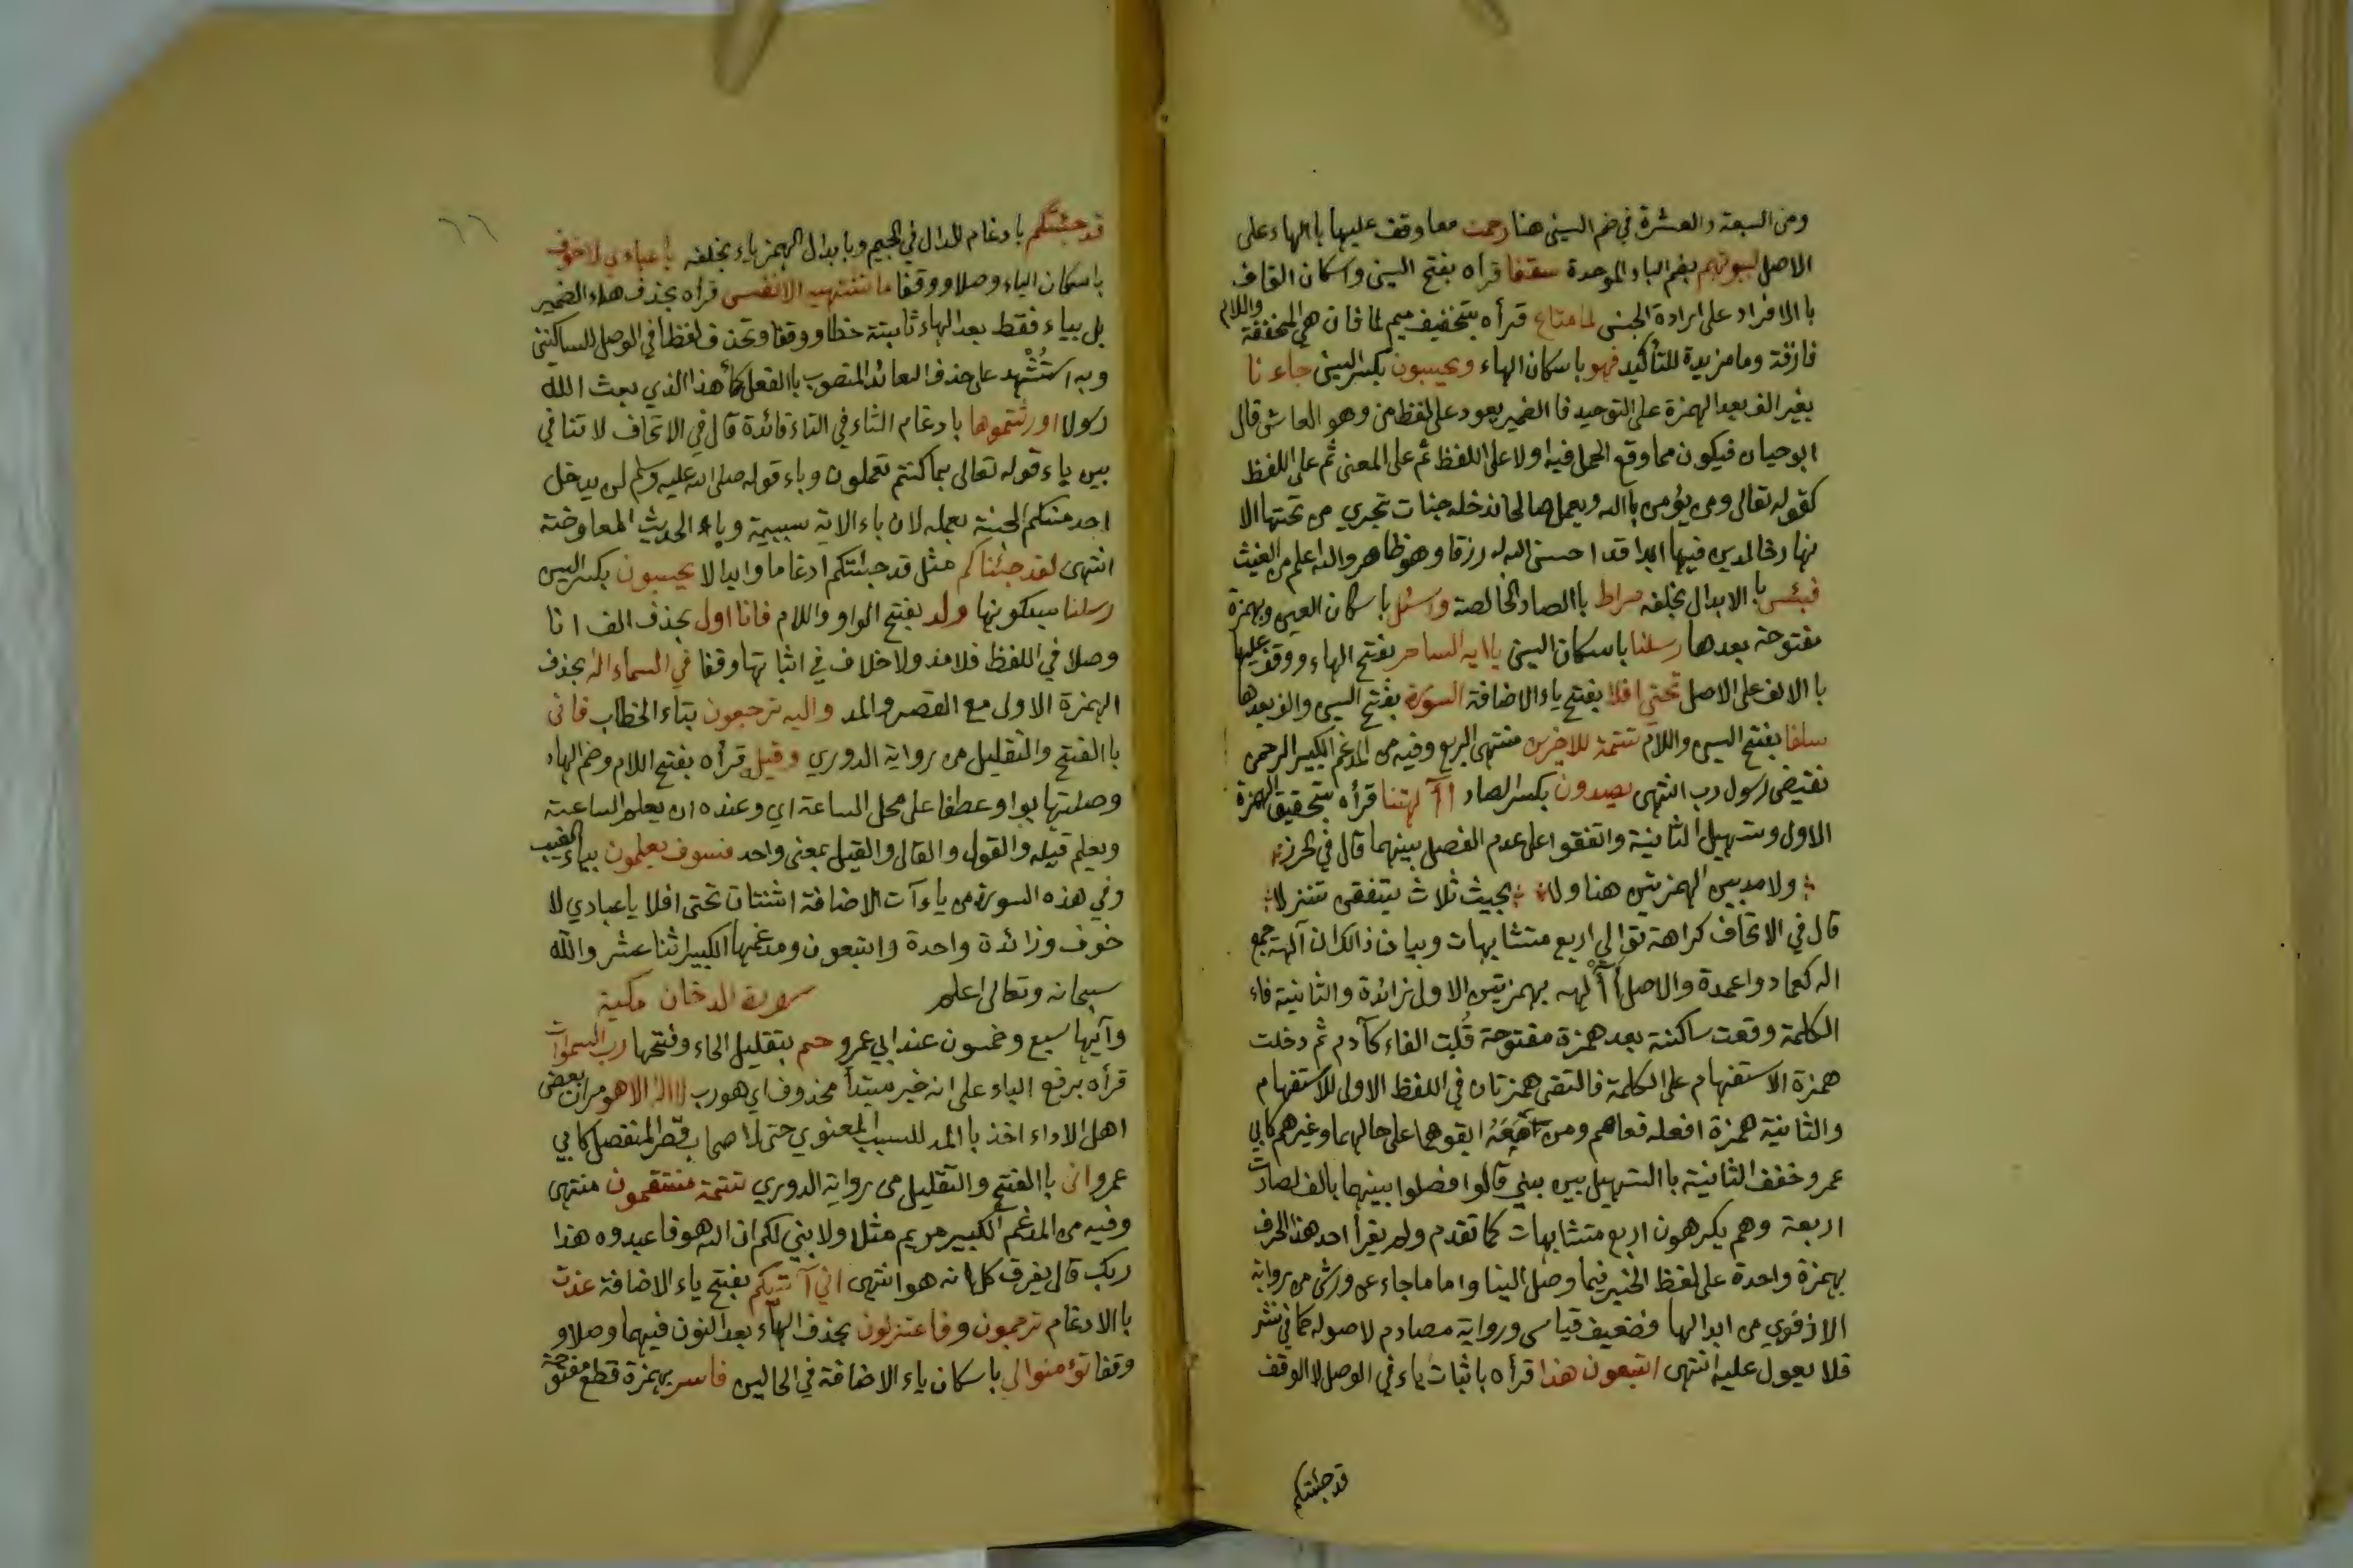 ومن السبعة والعشرة في ضم السين هنا رحمت معا وقف عليها باالهاء على
الاصل لبيوتهم بضم الباء الموحدة سقفا قرأه بفتح السين واسكان القاف
باالافراد على ارادة الجنس لما متاع قرأه بتخفيف ميم لما فان هي المخففة واللام
فارقة وما مزيدة للتأكيد فهو باسكان الهاء ويحسبون بكسر السين جاءنا
بغير الف بعد الهمزة على التوحيد فا الضمير يعود على لفظ من وهو العاش قال
ابو حيان فيكون مما وقع الحمل فيه اولا على اللفظ ثم على المعنى ثم على اللفظ
كقوله تعالى ومن يؤمن باالله ويعمل صالحا ندخله جنات تجري من تحتها الا
نهار خالدين فيها ابدا قد احسن الله له رزقا وهو ظاهر والله اعلم من الغيث
فبئس باالابدال بخلفه صراط باالصاد الخالصة واسئل باسكان السين وبهمزة
مفتوحة بعدها رسلنا باسكان السين ياايه الساحر بفتح الهاء ووقف عليها
باالالف على الاصل تحتي افلا بفتح ياء الاضافة اسورة بفتح السين والف بعدها
سلفا بفتح السين واللام تتمة للاخرين منتهى الربع وفيه من المدغم الكبير الرحمن
نقيض رسول رب انتهى يصدون بكسر الصاد أآلهتنا قرأه بتحقيق الهمزة
الاولى وتسهيل الثانية واتفقوا على عدم الفصل بينهما قال في الحرز
ولا مد بين الهمزتين هنا ولا بحيث ثلاث يتفقن تنزلا
قال في الاتحاف كراهة توالي اربع متشابهات وبيان ذالك ان آلهة جمع
اله كعماد واعمدة والاصل أألهه بهمزتين الاولى زائدة والثانية فاء
الكلمة وقعت ساكنة بعد همزة مفتوحة قلبت الفاء كآدم ثم دخلت
همزة الاستفهام على الكلمة فالتقى همزتان في اللفظ الاولى للاستفهام
والثانية همزة افعلة فعاصم ومن معه ابقوهما على حالهما وغيرهم كابي
عمرو خفف الثانية باالتسهيل بين بين قالوا فصلوا بينهما بالف لصارت
اربعة وهم يكرهون اربع متشابهات كما تقدم ولم يقرأ احد هذا الحرف
بهمزة واحدة على لفظ الخبر فيما وصل الينا واما ما جاء عن ورش من رواية
الاذفوي من ابدالها فضعيف قياسى ورواية مصادم لاصوله كما في نشر
فلا يعول عليه انتهى اتبعون هذا قرأه باثبات ياء في الوصل لا الوقف
قد جئتكم
٦٦
قد جئتكم بادغام الدال في الجيم وبابدال الهمز ياء بخلفه ياعبادي لا خوف
باسكان الياء وصلا ووقفا ما تشتهيه الانفس قرأه بحذف هاء الضمير
بل بياء فقط بعد الهاء ثابتة خطا ووقفا وتحذف لفظا في الوصل للساكنين
وبه استشهد على حذف العائد المنصوب باالفعل كأهذا الذي بعث الله
رسولا اورثتموها بادغام الثاء في التاء فائدة قال في الاتحاف لا تنافي
بين ياء قوله تعالى بما كنتم تعملون وباء قوله صلى الله عليه وسلم لن يدخل
احد منكم الجنة بعمله لان باء الاية سببية وباء الحديث المعاوضة
انتهى لقد جئناكم مثل قد جئتكم ادغاما وابدالا يحسبون بكسر السين
رسلنا بسكونها ولد بفتح الواو واللام فانا اول بحذف الف انا
وصلا في اللفظ فلا مد ولا خلاف في اثباتها وقفا في السماء اله بحذف
الهمزة الاولى مع القصر والمد واليه ترجعون بتاء الخطاب فانى
باالفتح والتقليل من رواية الدوري وقيله قرأه بفتح اللام وضم الهاء
وصلتها بواو عطفا على محل الساعة اي وعنده ان يعلم الساعة
ويعلم قيله والقول والقال والقيل بمعنى واحد فسوف يعلمون بياء الغيب
وفي هذه السورة من ياءآت الاضافة اثنتان تحتى افلا ياعبادي لا
خوف وزائدة واحدة واتبعون ومدغمها الكبير اثنا عشر والله
سبحانه وتعالى اعلم سورة الدخان مكية
وآيها سبع وخمسون عند ابي عمرو حم بتقليل الحاء وفتحها رب السموات
قرأه برفع الباء على انه خبر مبتدأ محذوف اي هو رب لااله الا هو مر ان بعض
اهل الاداء اخذ باالمد للسبب المعنوي حتى لاصحاب قصر المنفصل كابي
عمرو انى باالفتح والتقليل من رواية الدوري تتمة منتقمون منتهى
وفيه من المدغم الكبير مريم مثلا ولابين لكم ان الله هو فاعبدوه هذا
ربك قال يفرق كل انه هو انتهى اني آتيكم بفتح ياء الاضافة عذت
باالادغام ترجمون وفاعتزلون بحذف الهاء بعد النون فيهما وصلا و
وقفا تؤمنوا لي باسكان ياء الاضافة في الحالين فاسر بهمزة قطع مفتوحة